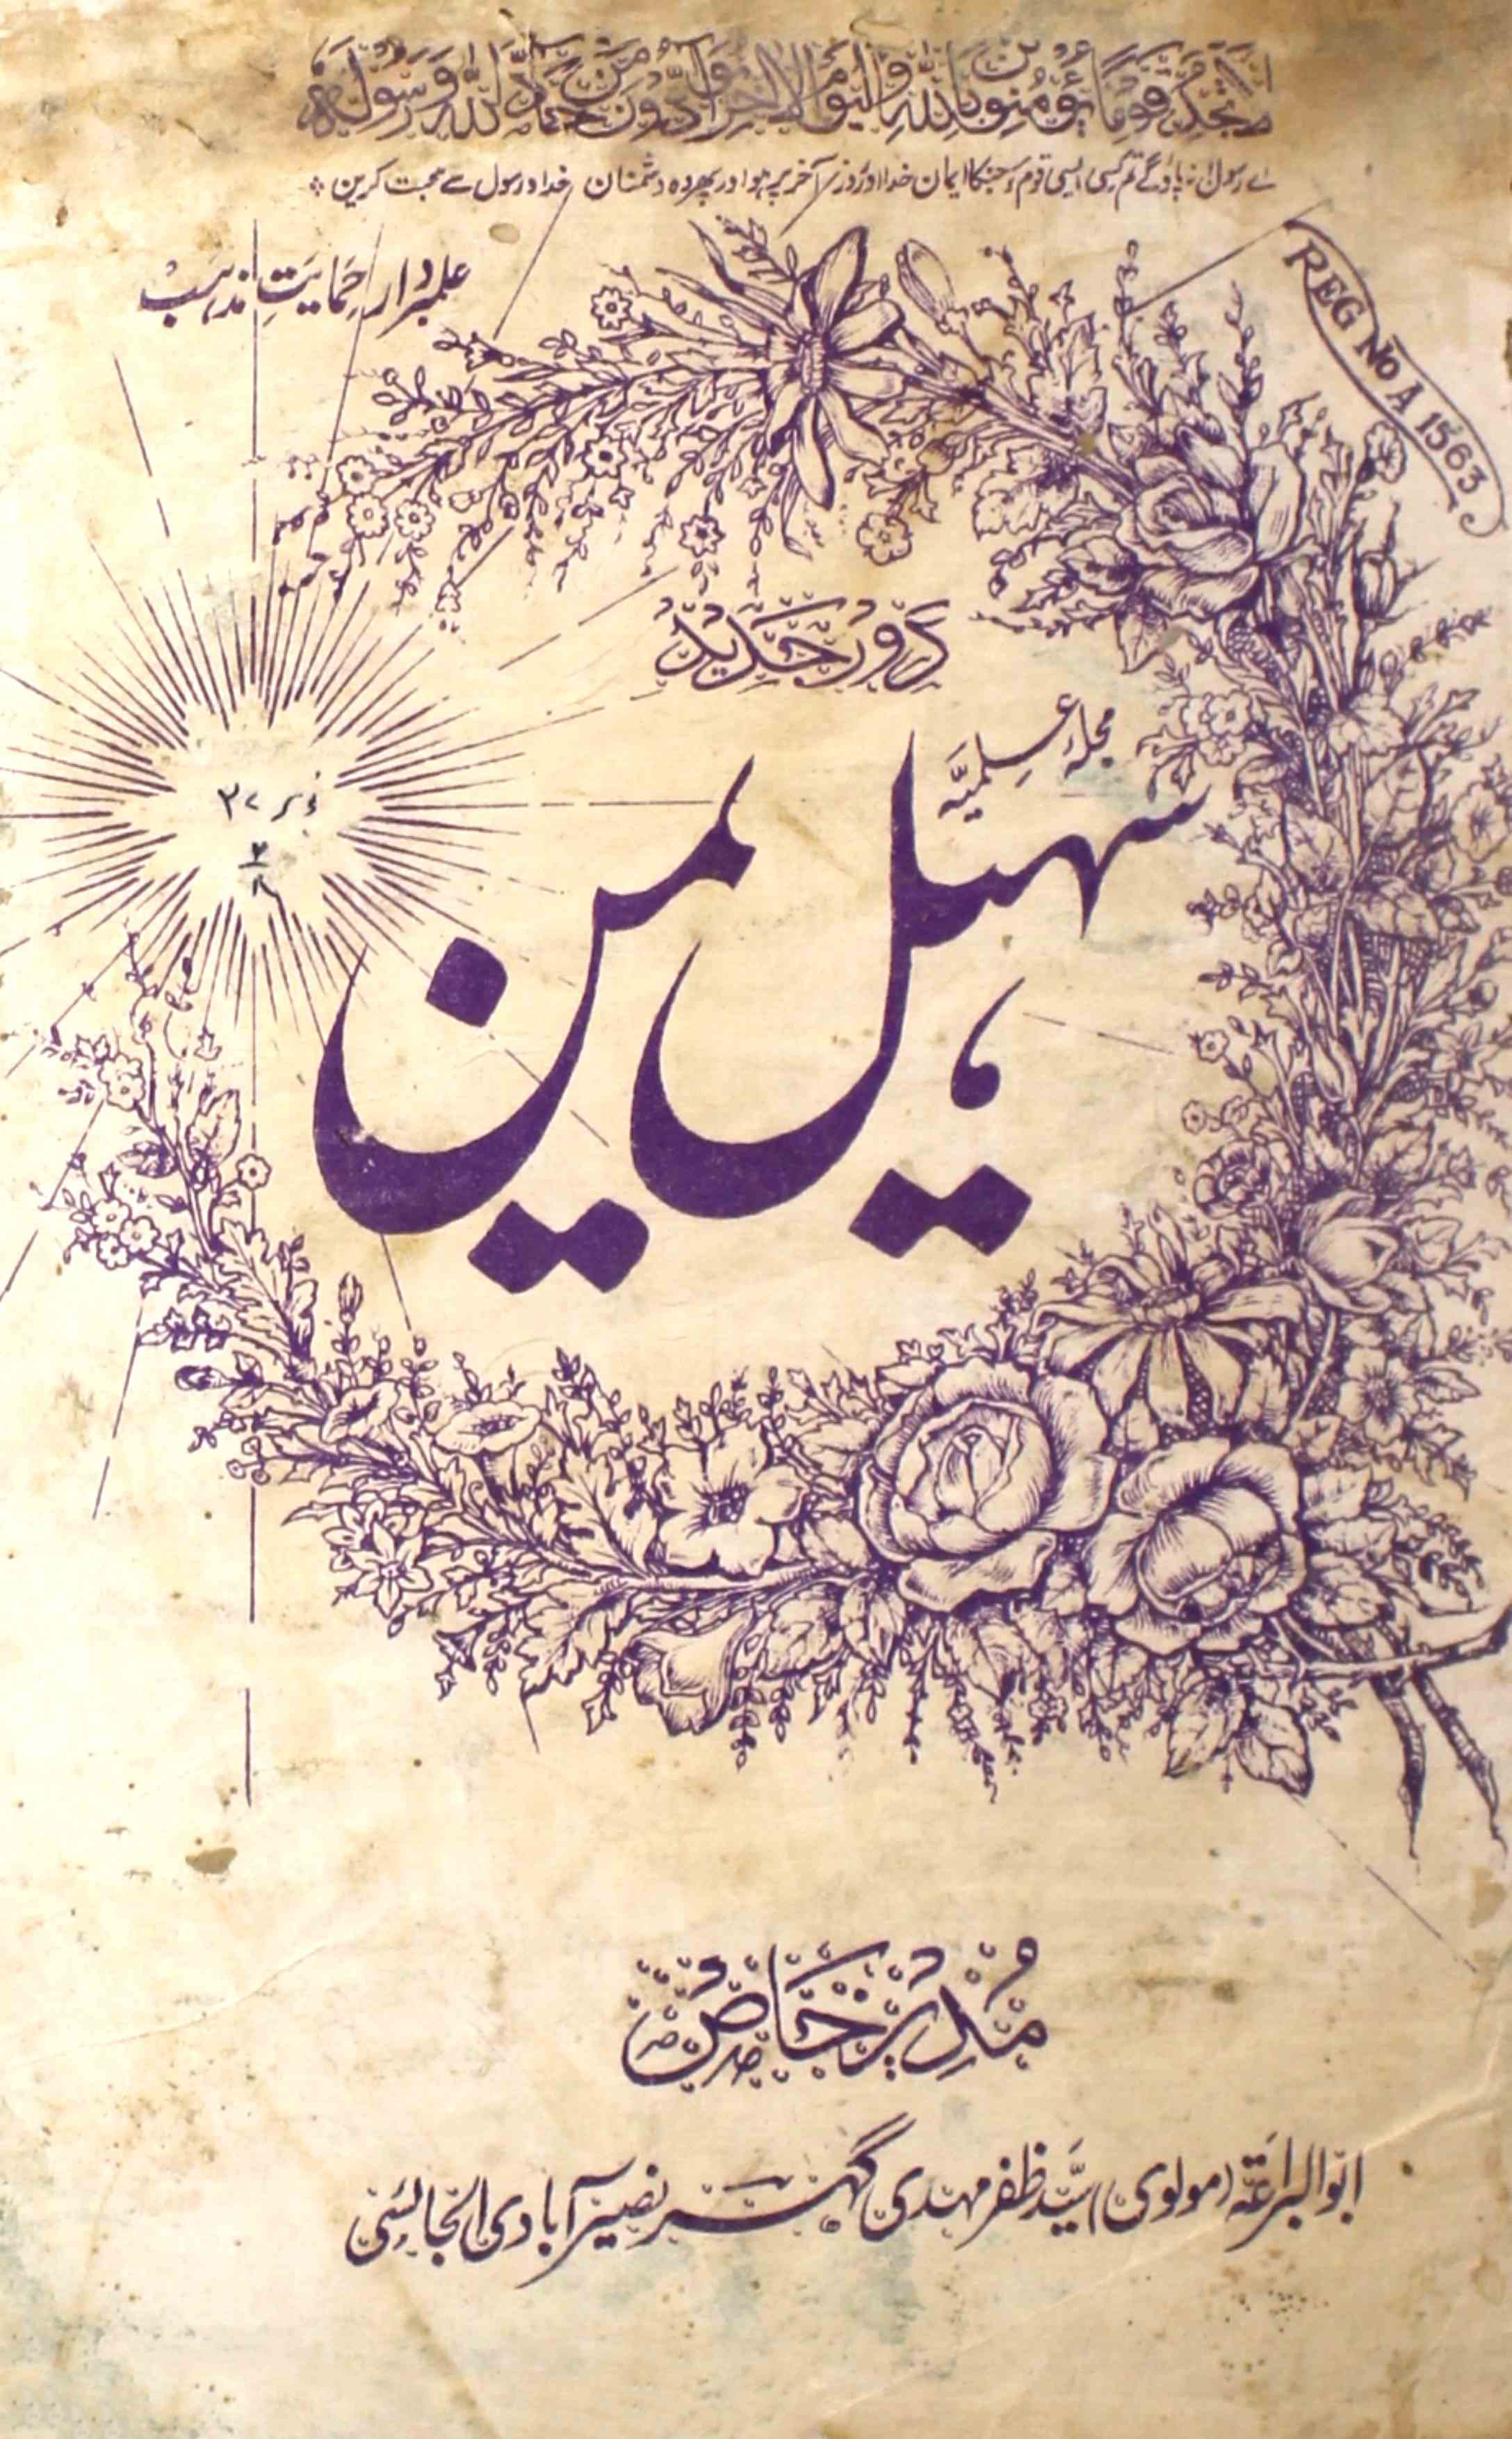 لا تجد قوما یؤمنون باللہ والیوم الاخر یوادون من حاد اللہ ورسولہ
اے رسول نہ پاؤگے تم کسی ایسی قوم کو جنکا ایمان خدا اور روز آخر پر ہو اور پھر وہ دشمنان خدا و رسول سے محبت کریں
علمبردار حمایتِ مذہب
REG No A 1563
دورِ جدید
مجلۂ علمیّہ
سہیل یمن
مدیر خاص
ابوالبراعۃ (مولوی) سیّد ظفر مہدی گہر نصیرآبادی الجائسی